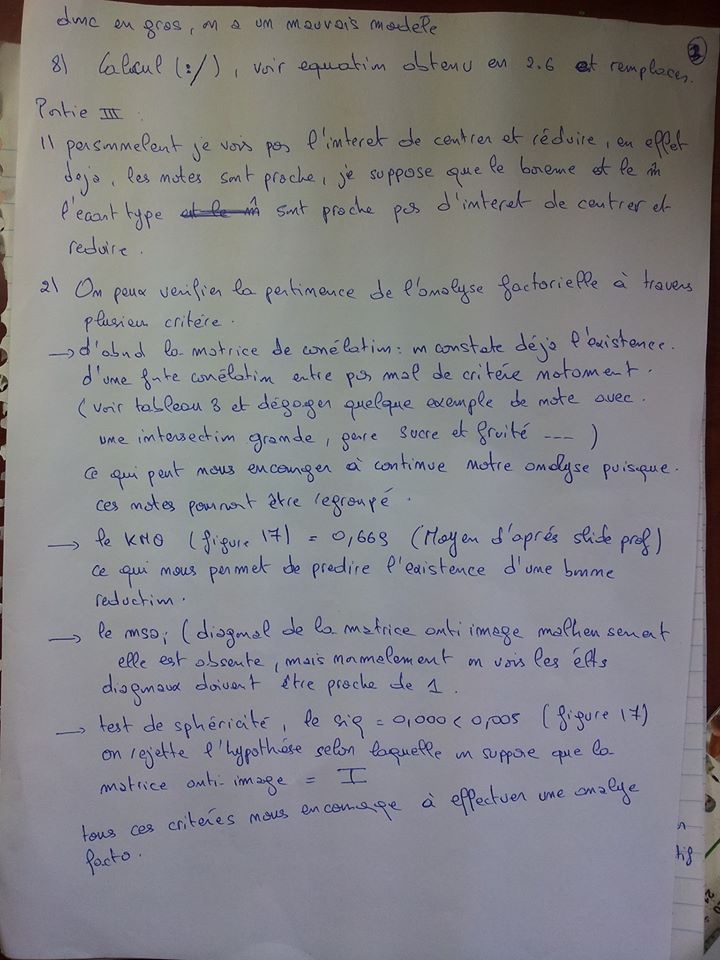 donc en gros, on a un mauvais modele
3
8) Calcul (:/), voir equation obtenu en 2.6 et remplaces.
Partie III :
1) personnelent je vois pas l'interet de centrer et réduire, en effet
deja, les notes sont proche, je suppose que le bareme est le m̂
l'ecart type et le m̂ sont proche pas d'interet de centrer et
reduire.
2) On peux verifier la pertinence de l'analyse factorielle à travers
plusieur critére.
→ d'abord la matrice de corrélation: on constate déjà l'existence.
d'une forte corrélation entre pas mal de critére notament.
(voir tableau 3 et dégager quelque exemple de note avec.
une intersection grande, genre sucre et fruité ---)
ce qui peut nous encourager à continue notre analyse puisque.
ces notes pourront être regroupé.
→ le KMO (figure 17) = 0,669 (Moyen d'aprés slide prof)
ce qui nous permet de predire l'existence d'une bonne
reduction.
→ le msa; (diagonal de la matrice anti image malheuresement
elle est absente, mais normalement on vois les élts
diagonaux doivent être proche de 1.
→ test de sphéricité, le sig = 0,000 < 0,005 (figure 17)
on rejette l'hypothése selon laquelle on suppose que la
matrice anti-image = I
tous ces critéres nous encourage à effectuer une analye
facto.